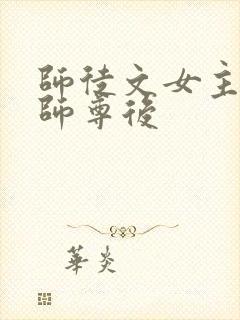 師徒文女主
師尊後
華炎